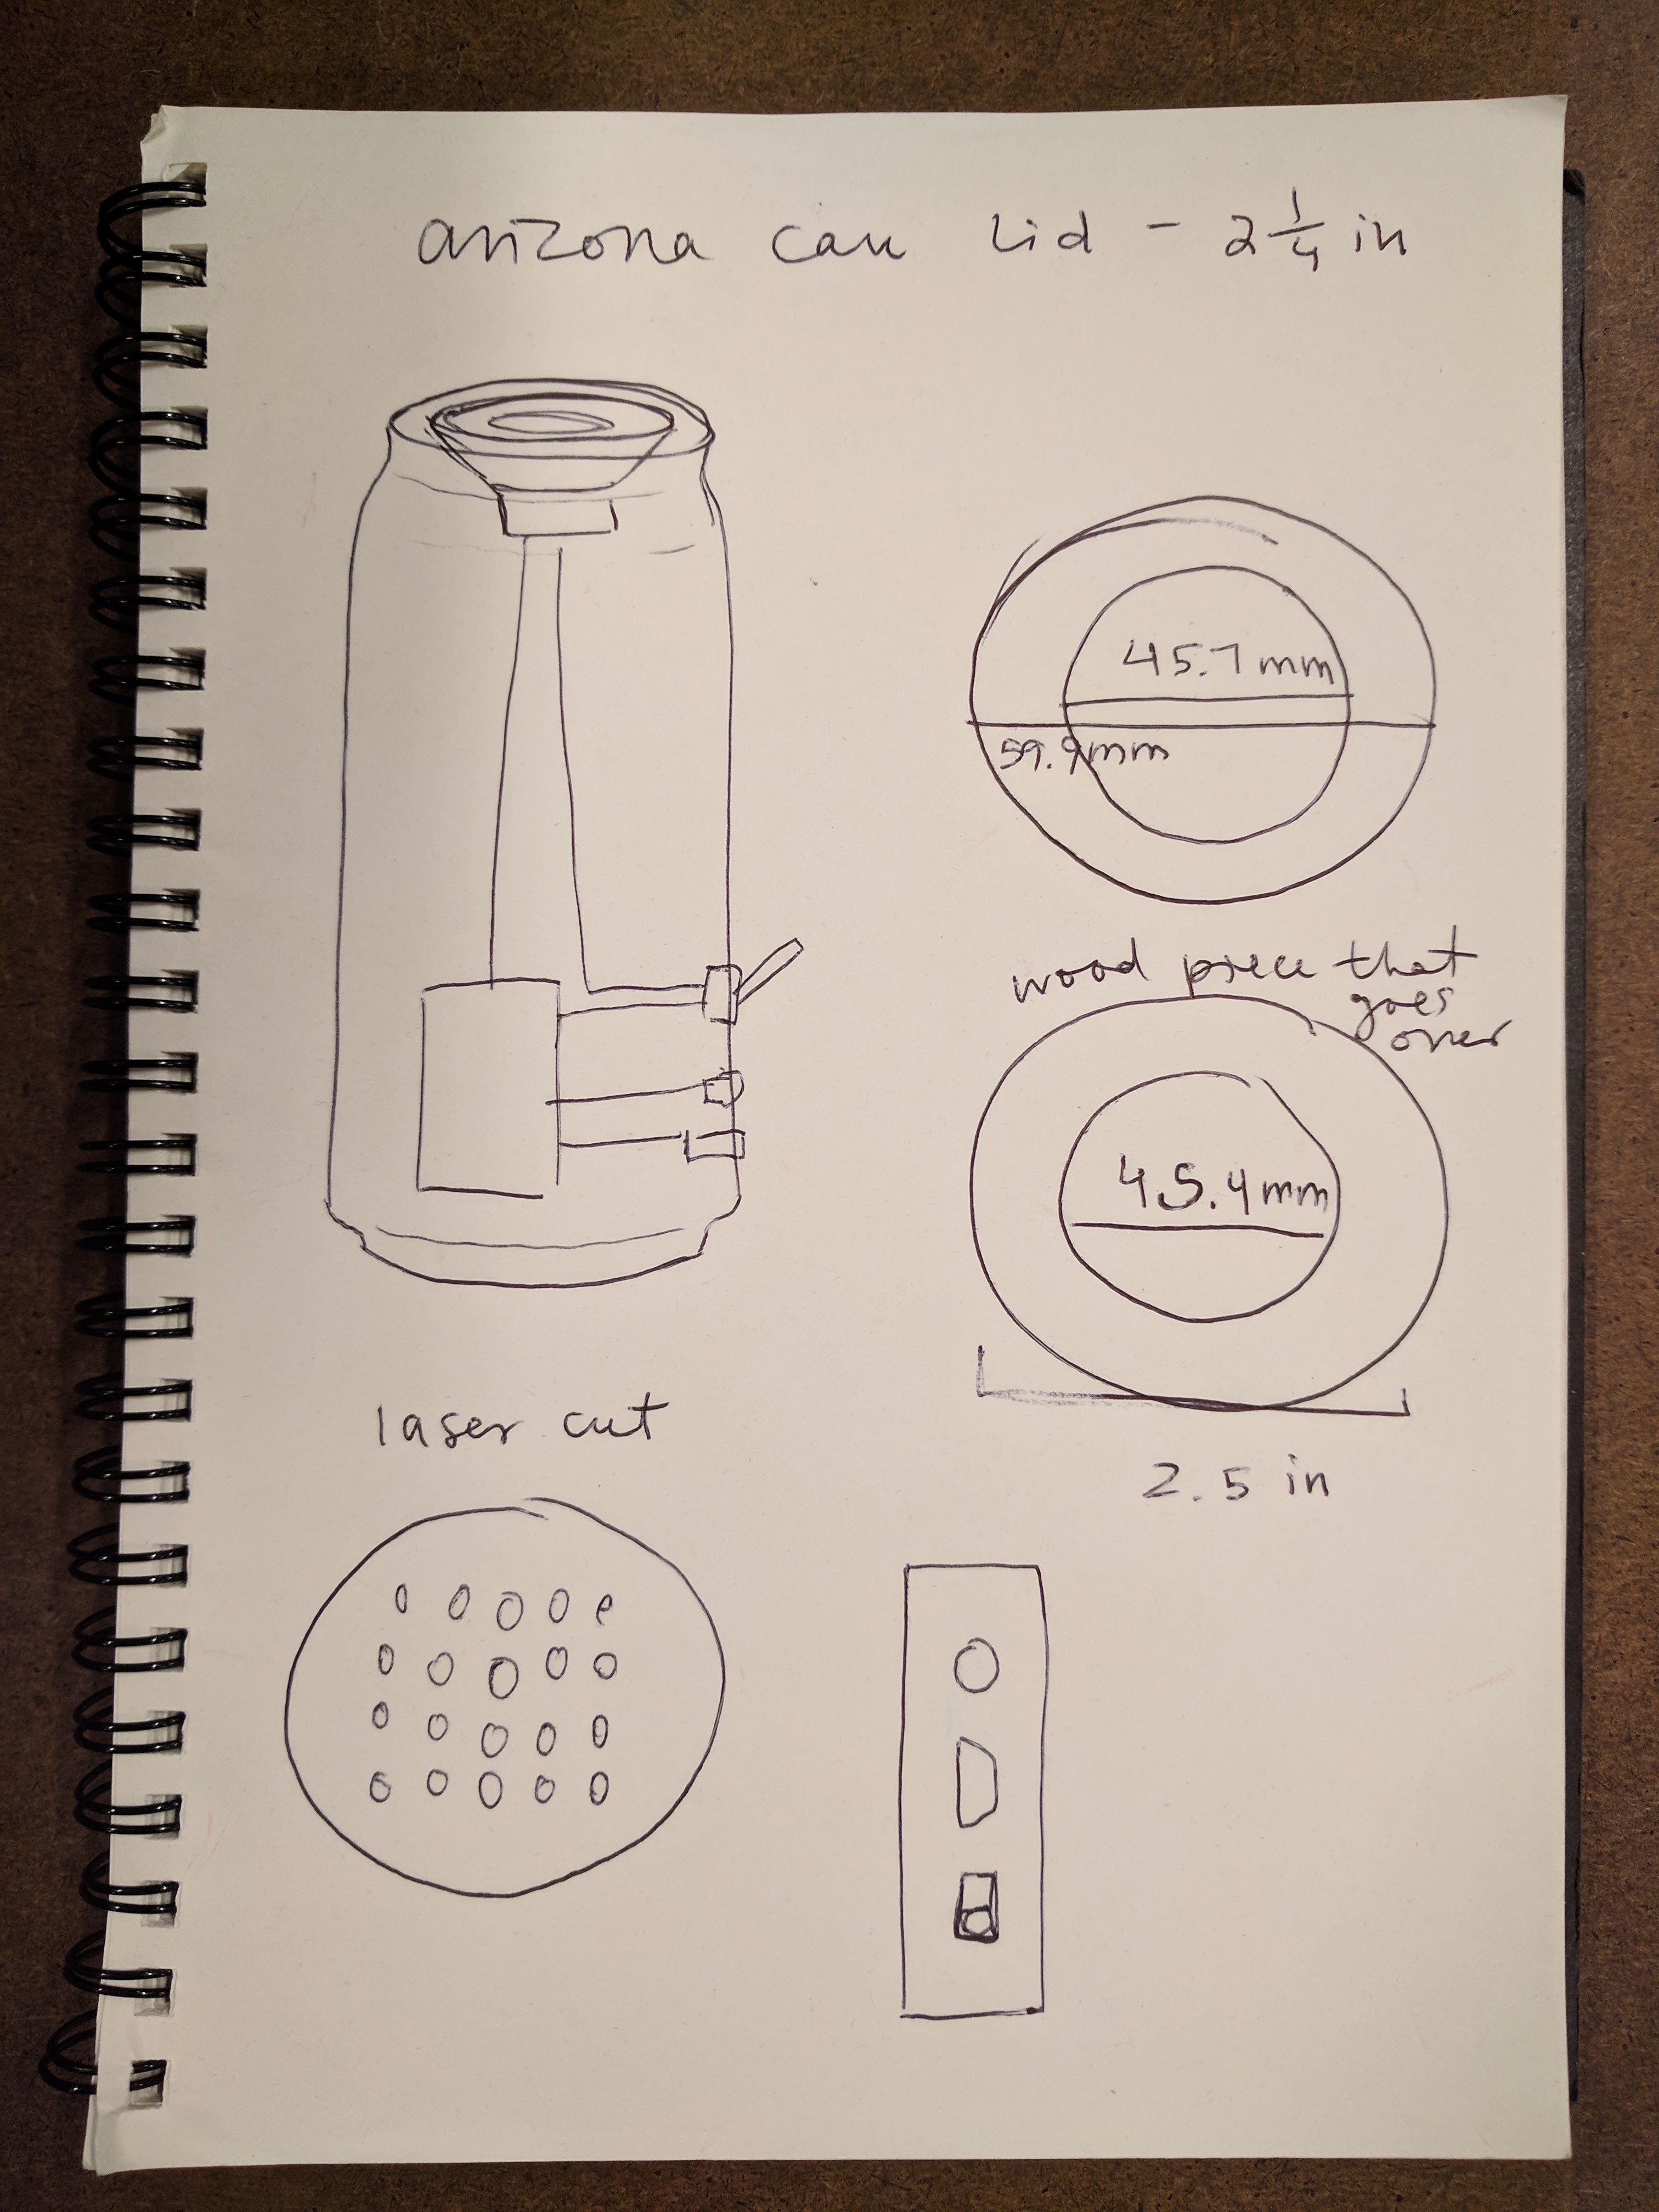 arizona can lid - 2 1/4 in
45.7mm
59.9mm
wood piece that
goes
over
45.4mm
laser cut
2.5 in